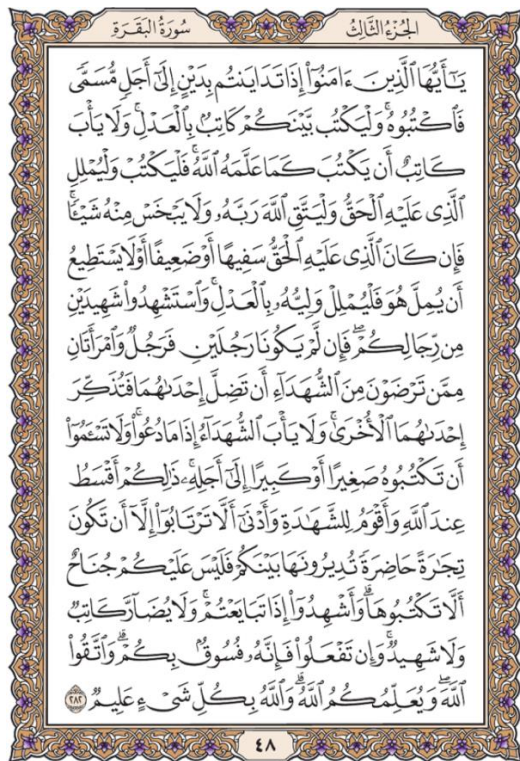 الجُزْءُ الثَّالِثُ
سُورَةُ البَقَرَةِ
يَٰٓأَيُّهَا ٱلَّذِينَ ءَامَنُوٓاْ إِذَا تَدَايَنتُم بِدَيْنٍ إِلَىٰٓ أَجَلٍ مُّسَمًّى
فَٱكْتُبُوهُۚ وَلْيَكْتُب بَّيْنَكُمْ كَاتِبُۢ بِٱلْعَدْلِۚ وَلَا يَأْبَ
كَاتِبٌ أَن يَكْتُبَ كَمَا عَلَّمَهُ ٱللَّهُۚ فَلْيَكْتُبْ وَلْيُمْلِلِ
ٱلَّذِى عَلَيْهِ ٱلْحَقُّ وَلْيَتَّقِ ٱللَّهَ رَبَّهُۥ وَلَا يَبْخَسْ مِنْهُ شَيْـًٔاۚ
فَإِن كَانَ ٱلَّذِى عَلَيْهِ ٱلْحَقُّ سَفِيهًا أَوْ ضَعِيفًا أَوْ لَا يَسْتَطِيعُ
أَن يُمِلَّ هُوَ فَلْيُمْلِلْ وَلِيُّهُۥ بِٱلْعَدْلِۚ وَٱسْتَشْهِدُواْ شَهِيدَيْنِ
مِن رِّجَالِكُمْۖ فَإِن لَّمْ يَكُونَا رَجُلَيْنِ فَرَجُلٌ وَٱمْرَأَتَانِ
مِمَّن تَرْضَوْنَ مِنَ ٱلشُّهَدَآءِ أَن تَضِلَّ إِحْدَىٰهُمَا فَتُذَكِّرَ
إِحْدَىٰهُمَا ٱلْأُخْرَىٰۚ وَلَا يَأْبَ ٱلشُّهَدَآءُ إِذَا مَا دُعُواْۚ وَلَا تَسْـَٔمُوٓاْ
أَن تَكْتُبُوهُ صَغِيرًا أَوْ كَبِيرًا إِلَىٰٓ أَجَلِهِۦۚ ذَٰلِكُمْ أَقْسَطُ
عِندَ ٱللَّهِ وَأَقْوَمُ لِلشَّهَٰدَةِ وَأَدْنَىٰٓ أَلَّا تَرْتَابُوٓاْ إِلَّآ أَن تَكُونَ
تِجَٰرَةً حَاضِرَةً تُدِيرُونَهَا بَيْنَكُمْ فَلَيْسَ عَلَيْكُمْ جُنَاحٌ
أَلَّا تَكْتُبُوهَاۗ وَأَشْهِدُوٓاْ إِذَا تَبَايَعْتُمْۚ وَلَا يُضَآرَّ كَاتِبٌ
وَلَا شَهِيدٌۚ وَإِن تَفْعَلُواْ فَإِنَّهُۥ فُسُوقُۢ بِكُمْۗ وَٱتَّقُواْ
ٱللَّهَۖ وَيُعَلِّمُكُمُ ٱللَّهُۗ وَٱللَّهُ بِكُلِّ شَىْءٍ عَلِيمٌ ٢٨٢
٤٨